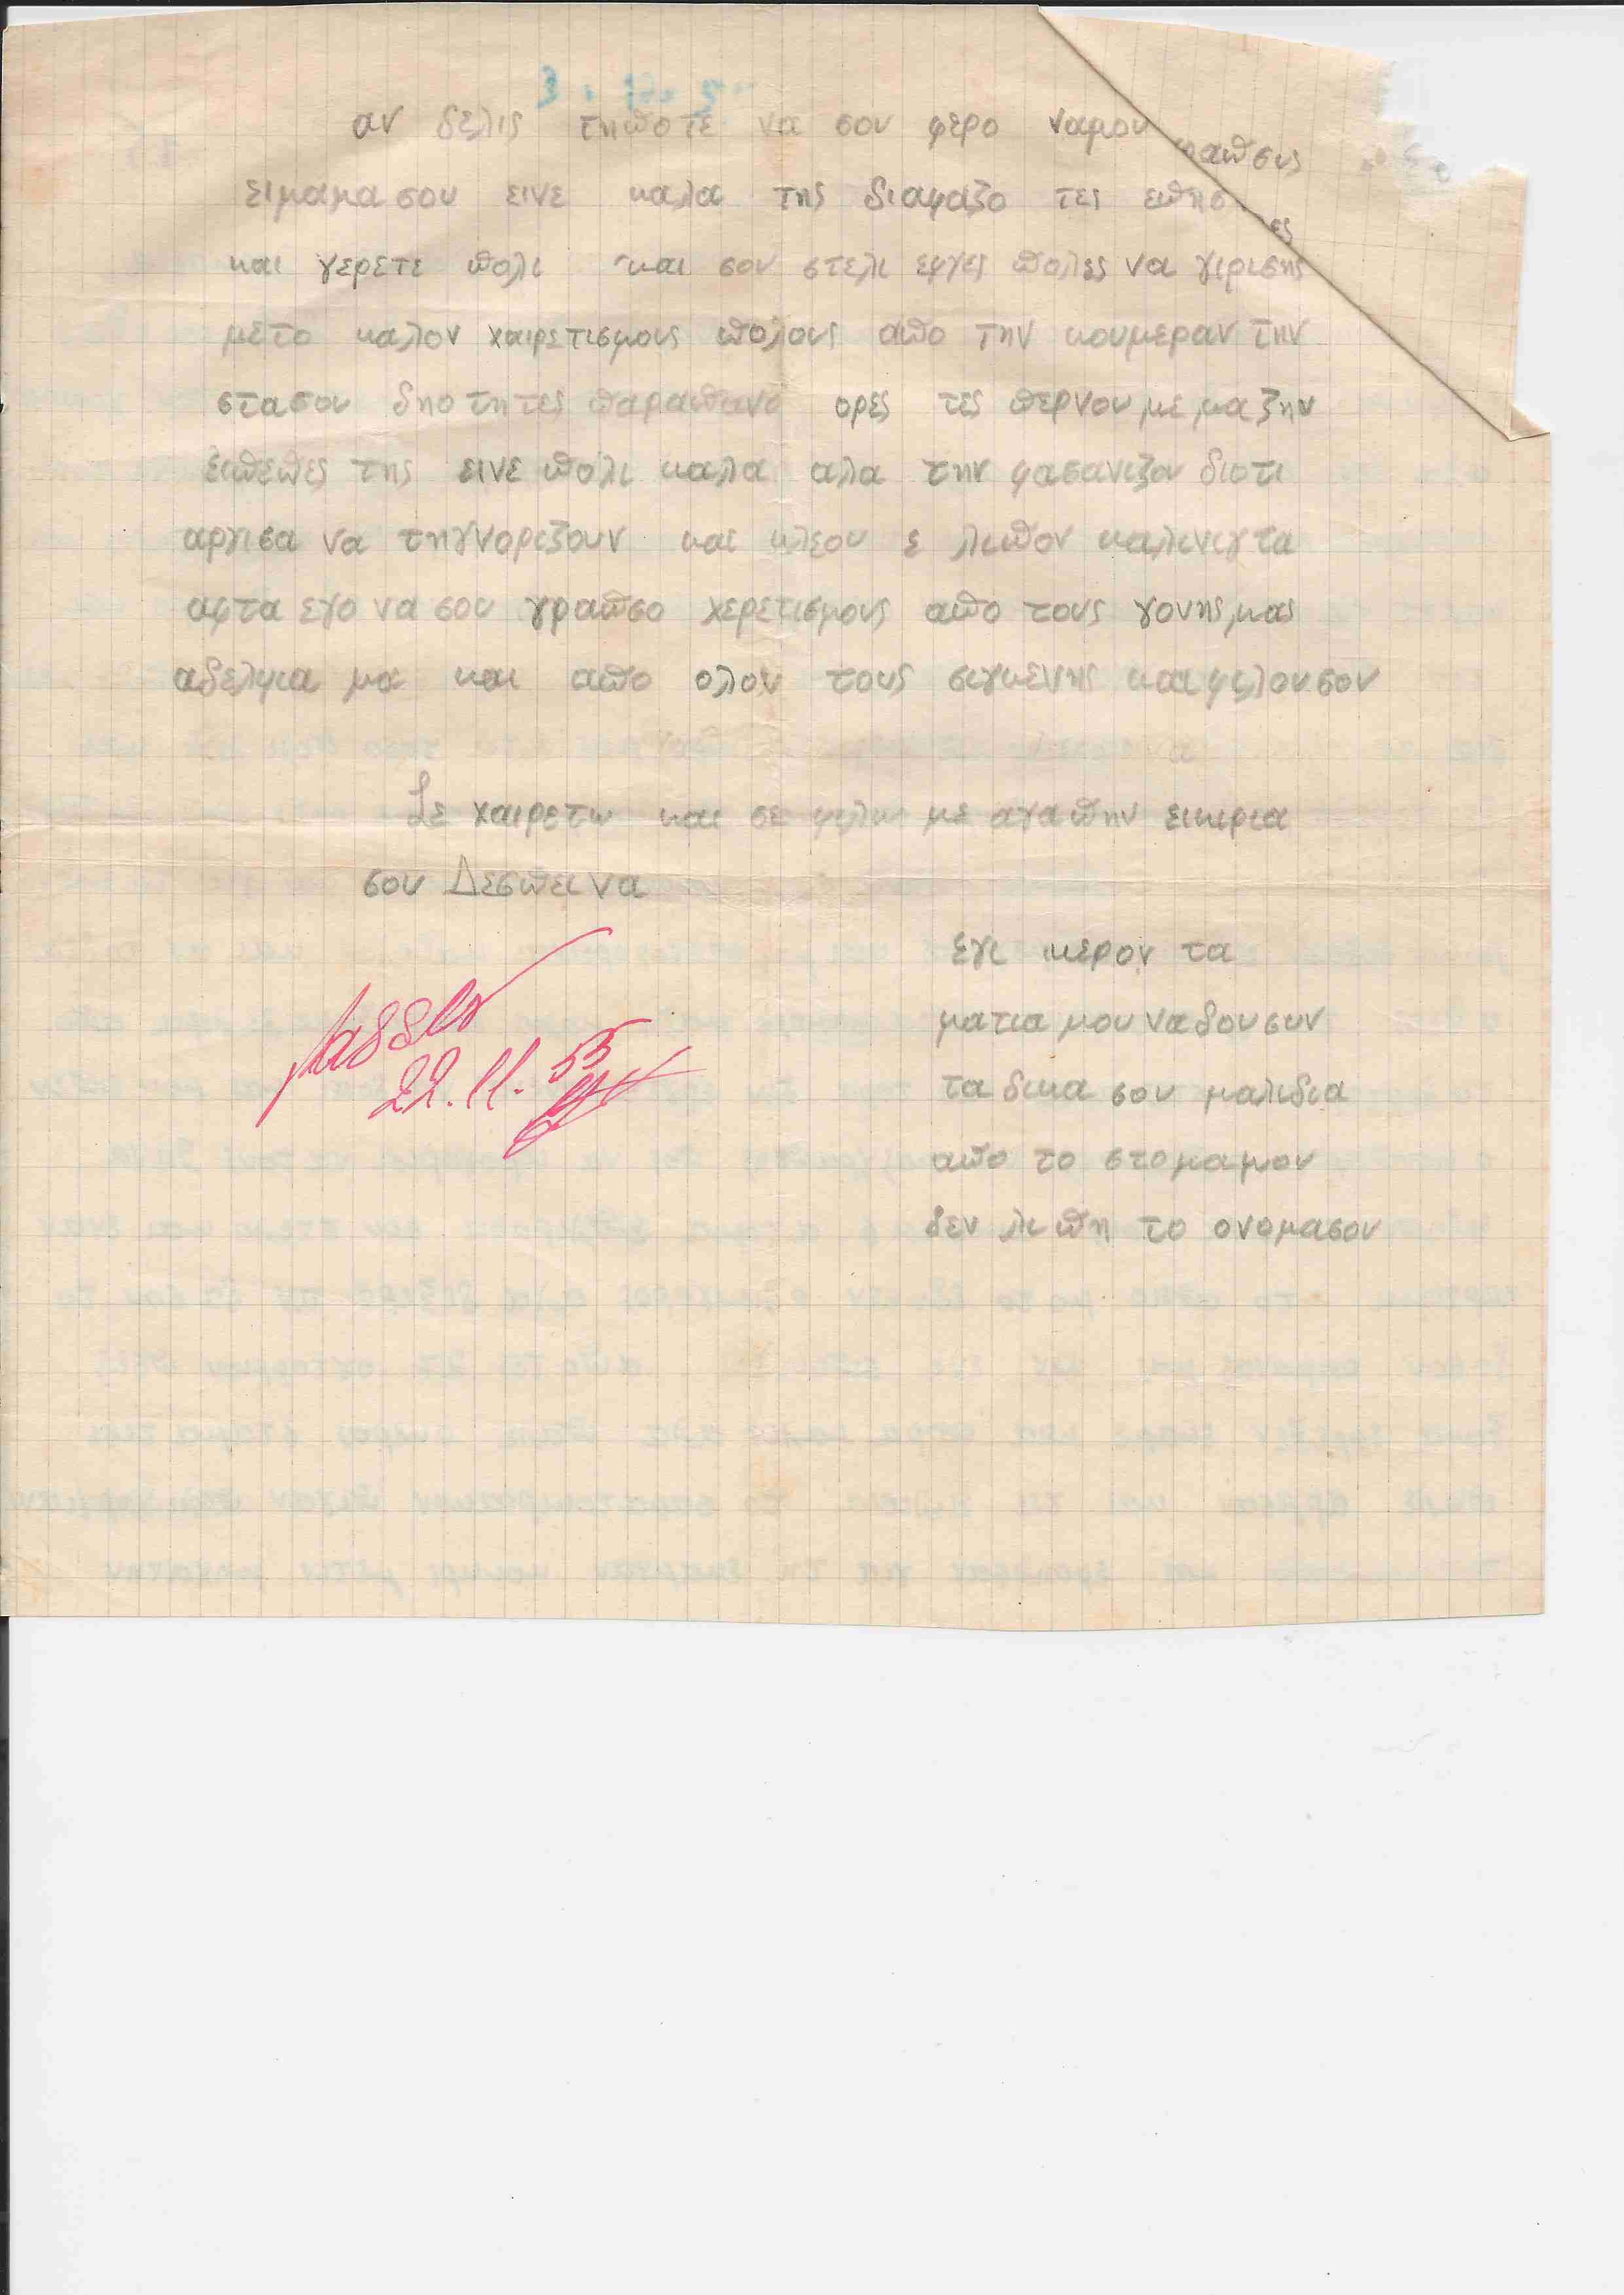 αν δελις τηποτε να σου φερο ναμου ραπσις
ειμαμα σου εινε καλα της διαφαζο τες επησ ες
και γερετε πολι και σου στελι εφγες πολες να γιρισης
μετο καλον χαιρετισμους πολους απο την κουμεραν την
στασου δηοτητες παραπανο ορες τες περνουμε μαζην
ειπεπες της εινε πολι καλα αλα την φασανιζον διοτι
αργισα να τηγνοριζουν και κλεου ε λιπον καλινιγτα
αφτα εγο να σου γραπσο χερετισμους απο τους γονης μας
αδελφια μα και απο ολον τους σιγκενης και φιλους σου
Σε χαιρετω και σε φιλω με αγαπην εικιρια
σου Δεσπεινα
εγι κερον τα
ματια μου να δουσυν
τα δικα σου μαλιδια
απο το στομαμου
δεν λιπη το ονομασου
22.11.55